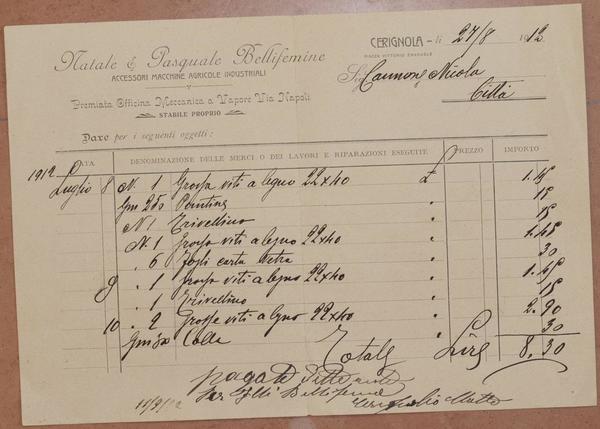 CERIGNOLA - li 27/8 1912
PIAZZA VITTORIO EMANUELE
Natale & Pasquale Bellifemine
ACCESSORI MACCHINE AGRICOLE INDUSTRIALI
Sig. Cannone Nicola
Città
Premiata Officina Meccanica a Vapore Via Napoli
STABILE PROPRIO
Dare per i seguenti oggetti:
DATA DENOMINAZIONE DELLE MERCI O DEI LAVORI E RIPARAZIONI ESEGUITE PREZZO IMPORTO
1912 Luglio 8 N. 1 Grossa viti a legno 22x40 £ 1.45
Gm 250 Puntine 15
N 1 Trivellino 15
N. 1 Grossa viti a legno 22x40 1.45
" 6 Fogli carta vetra 30
9 " 1 Grossa viti a legno 22x40 1.45
" 1 Trivellino 15
10 " 2 Grosse viti a legno 22x40 2.90
Colla 30
Totale Lire 8.30
pagato
Per Flli Bellifemine